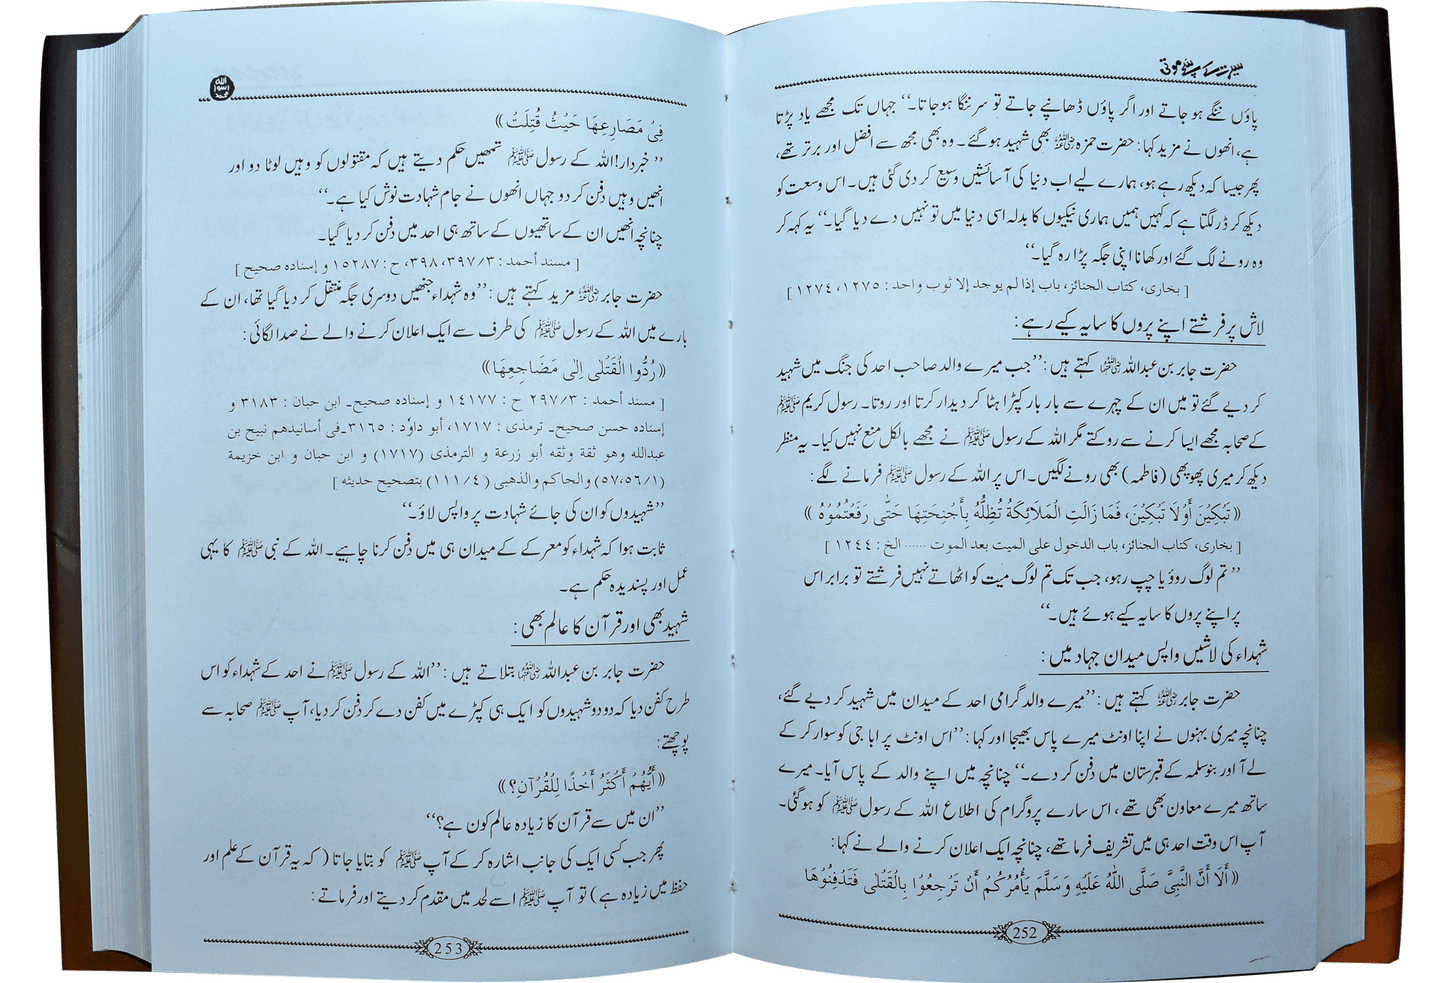 سیرت کے سچے موتی
پاؤں ننگے ہو جاتے اور اگر پاؤں ڈھانپے جاتے تو سر ننگا ہو جاتا۔‘‘ جہاں تک مجھے یاد پڑتا
ہے، انھوں نے مزید کہا: حضرت حمزہ رضی اللہ عنہ بھی شہید ہو گئے۔ وہ بھی مجھ سے افضل اور برتر تھے،
پھر جیسا کہ دیکھ رہے ہو، ہمارے لیے اب دنیا کی آسائشیں وسیع کر دی گئی ہیں۔ اس وسعت کو
دیکھ کر ڈر لگتا ہے کہ کہیں ہمیں ہماری نیکیوں کا بدلہ اسی دنیا میں تو نہیں دے دیا گیا۔‘‘ یہ کہہ کر
وہ رونے لگ گئے اور کھانا اپنی جگہ پڑا رہ گیا۔‘‘
[ بخاری، کتاب الجنائز، باب إذا لم یوجد إلا ثوب واحد : ١٢٧٥، ١٢٧٤ ]
لاش پر فرشتے اپنے پروں کا سایہ کیے رہے:
حضرت جابر بن عبداللہ رضی اللہ عنہما کہتے ہیں: ’’جب میرے والد صاحب احد کی جنگ میں شہید
کر دیے گئے تو میں ان کے چہرے سے بار بار کپڑا ہٹا کر دیدار کرتا اور روتا۔ رسول کریم ﷺ
کے صحابہ مجھے ایسا کرنے سے روکتے مگر اللہ کے رسول ﷺ نے مجھے بالکل منع نہیں کیا۔ یہ منظر
دیکھ کر میری پھوپھی (فاطمہ) بھی رونے لگیں۔ اس پر اللہ کے رسول ﷺ فرمانے لگے:
« تَبْكِيْنَ أَوْ لَا تَبْكِيْنَ، فَمَا زَالَتِ الْمَلَائِكَةُ تُظِلُّهُ بِأَجْنِحَتِهَا حَتّٰى رَفَعْتُمُوْهُ »
[ بخاری، کتاب الجنائز، باب الدخول علی المیت بعد الموت ...... الخ : ١٢٤٤ ]
’’تم لوگ روؤ یا چپ رہو، جب تک تم لوگ میت کو اٹھاتے نہیں فرشتے تو برابر اس
پر اپنے پروں کا سایہ کیے ہوئے ہیں۔‘‘
شہداء کی لاشیں واپس میدان جہاد میں:
حضرت جابر رضی اللہ عنہ کہتے ہیں: ’’میرے والد گرامی احد کے میدان میں شہید کر دیے گئے،
چنانچہ میری بہنوں نے اپنا اونٹ میرے پاس بھیجا اور کہا: ’’اس اونٹ پر ابا جی کو سوار کر کے
لے آ اور بنو سلمہ کے قبرستان میں دفن کر دے۔‘‘ چنانچہ میں اپنے والد کے پاس آیا۔ میرے
ساتھ میرے معاون بھی تھے، اس سارے پروگرام کی اطلاع اللہ کے رسول ﷺ کو ہو گئی۔
آپ اس وقت احد ہی میں تشریف فرما تھے، چنانچہ ایک اعلان کرنے والے نے کہا:
« أَلَا أَنَّ النَّبِيَّ صَلَّى اللّٰهُ عَلَيْهِ وَسَلَّمَ يَأْمُرُكُمْ أَنْ تَرْجِعُوْا بِالْقَتْلٰى فَتَدْفِنُوْهَا
252
الله رسول محمد
فِيْ مَصَارِعِهَا حَيْثُ قُتِلَتْ »
’’خبردار! اللہ کے رسول ﷺ تمھیں حکم دیتے ہیں کہ مقتولوں کو وہیں لوٹا دو اور
انھیں وہیں دفن کر دو جہاں انھوں نے جام شہادت نوش کیا ہے۔‘‘
چنانچہ انھیں ان کے ساتھیوں کے ساتھ ہی احد میں دفن کر دیا گیا۔
[ مسند أحمد : ٣٩٧/٣، ٣٩٨، ح : ١٥٢٨٧ و إسناده صحیح ]
حضرت جابر رضی اللہ عنہ مزید کہتے ہیں: ’’وہ شہداء جنھیں دوسری جگہ منتقل کر دیا گیا تھا، ان کے
بارے میں اللہ کے رسول ﷺ کی طرف سے ایک اعلان کرنے والے نے صدا لگائی:
« رُدُّوا الْقَتْلٰى إِلٰى مَضَاجِعِهَا »
[ مسند أحمد : ٢٩٧/٣ ح : ١٤١٧٧ و إسناده صحیح۔ ابن حبان : ٣١٨٣ و
إسناده حسن صحیح۔ ترمذی : ١٧١٧، أبو داوٗد : ٣١٦٥۔ فی أسانیدهم نبیح بن
عبدالله وهو ثقة وثقه أبو زرعة و الترمذی (١٧١٧) و ابن حبان و ابن خزیمة
(٥٧،٥٦/١) والحاکم والذهبی (١١١/٤) بتصحیح حدیثه ]
’’شہیدوں کو ان کی جائے شہادت پر واپس لاؤ۔‘‘
ثابت ہوا کہ شہداء کو معرکے کے میدان ہی میں دفن کرنا چاہیے۔ اللہ کے نبی ﷺ کا یہی
عمل اور پسندیدہ حکم ہے۔
شہید بھی اور قرآن کا عالم بھی:
حضرت جابر بن عبداللہ رضی اللہ عنہما بتلاتے ہیں: ’’اللہ کے رسول ﷺ نے احد کے شہداء کو اس
طرح کفن دیا کہ دو دو شہیدوں کو ایک ہی کپڑے میں کفن دے کر دفن کر دیا، آپ ﷺ صحابہ سے
پوچھتے:
« أَيُّهُمْ أَكْثَرُ أَخْذًا لِلْقُرْآنِ؟ »
’’ان میں سے قرآن کا زیادہ عالم کون ہے؟‘‘
پھر جب کسی ایک کی جانب اشارہ کر کے آپ ﷺ کو بتایا جاتا (کہ یہ قرآن کے علم اور
حفظ میں زیادہ ہے) تو آپ ﷺ اسے لحد میں مقدم کر دیتے اور فرماتے:
253